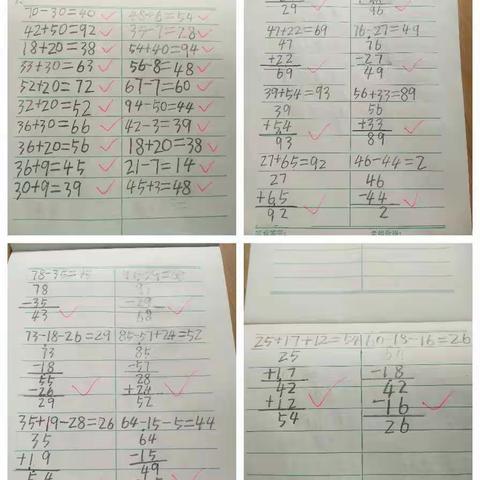 70-30=40 48+6=54
42+50=92 35-7=28
18+20=38 54+40=94
33+30=63 56-8=48
52+20=72 67-7=60
32+20=52 94-50=44
36+30=66 42-3=39
36+20=56 18+20=38
36+9=45 21-7=14
30+9=39 45+3=48
29 96
47+22=69 76-27=49
47 76
+22 -27
69 49
39+54=93 56+33=89
39 56
+54 +33
93 89
27+65=92 46-44=2
27 46
+65 -44
92 2
78-35=
78
-35 -29
43 68
73-18-26=29 85-57+24=52
73 85
-18 -57
55 28
-26 +24
29 52
35+19-28=26 64-15-5=44
35 64
+19 -15
54 49
25+17+12=54 60-18-16=26
25
+17 -18
42 42
+12 -16
54 26